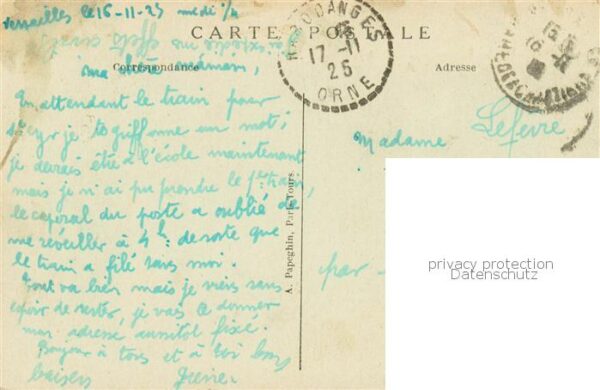 Versailles le 16-11-25 midi 1/4
CARTE POSTALE
Correspondance
Adresse
ma chère maman,
En attendant le train pour
St Cyr je te griffonne un mot;
je devais être à l'école maintenant
mais je n'ai pu prendre le 1er train,
le caporal du poste a oublié de
me réveiller à 4h; de sorte que
le train a filé sans moi.
Tout va bien mais je viens sans
espoir de rester, je vais te donner
mon adresse aussitôt fixé.
Bonjour à tous et à toi bons
baisers Pierre.
ANGES
17-11
25
ORNE
Madame Lefèvre
par
A. Papeghin, Paris-Tours
privacy protection
Datenschutz